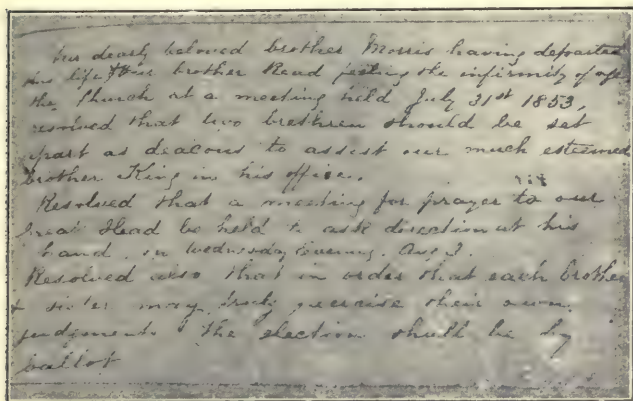 Our dearly beloved brother Morris having departed
this life & our brother Read feeling the infirmity of age
the Church at a meeting held July 31st 1853,
resolved that two brethren should be set
apart as deacons to assist our much esteemed
brother King in his office.
Resolved that a meeting for prayer to our
Great Head be held to ask direction at his
hand, on Wednesday Evening, Aug 3.
Resolved also that in order that each brother
& sister may truly exercise their own
judgments the election shall be by
ballot